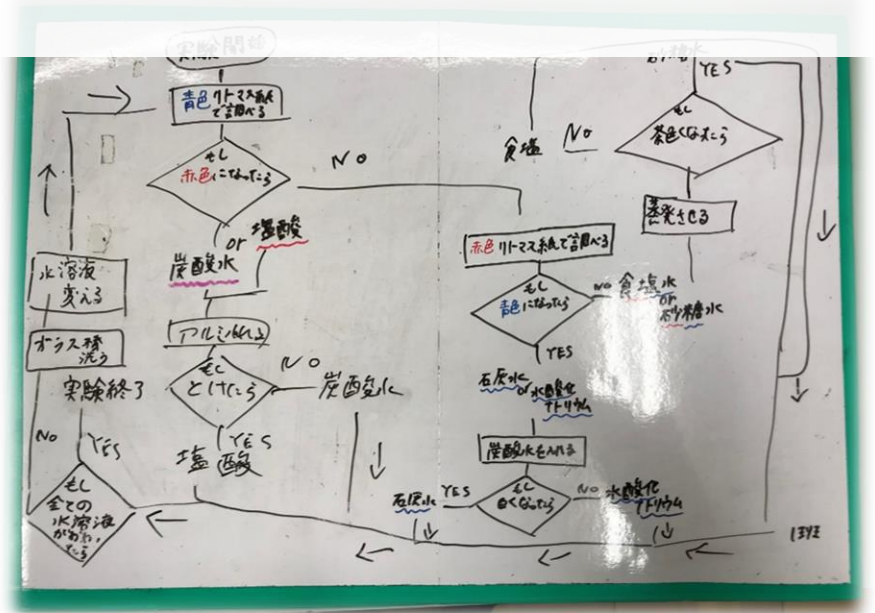 実験開始
青色リトマス紙
で調べる
もし
赤色になったら
NO
or
炭酸水
塩酸
アルミ入れる
もし
とけたら
NO
炭酸水
YES
塩酸
水溶液
変える
ガラス棒
洗う
実験終了
No
YES
もし
全ての
水溶液
がおわっ
たら
砂糖水
YES
もし
茶色くなったら
No
食塩
蒸発させる
赤色リトマス紙で調べる
もし
青色になったら
NO
食塩水
or
砂糖水
YES
石灰水
or
水酸化
ナトリウム
炭酸水を入れる
もし
白くなったら
YES
石灰水
NO
水酸化
ナトリウム